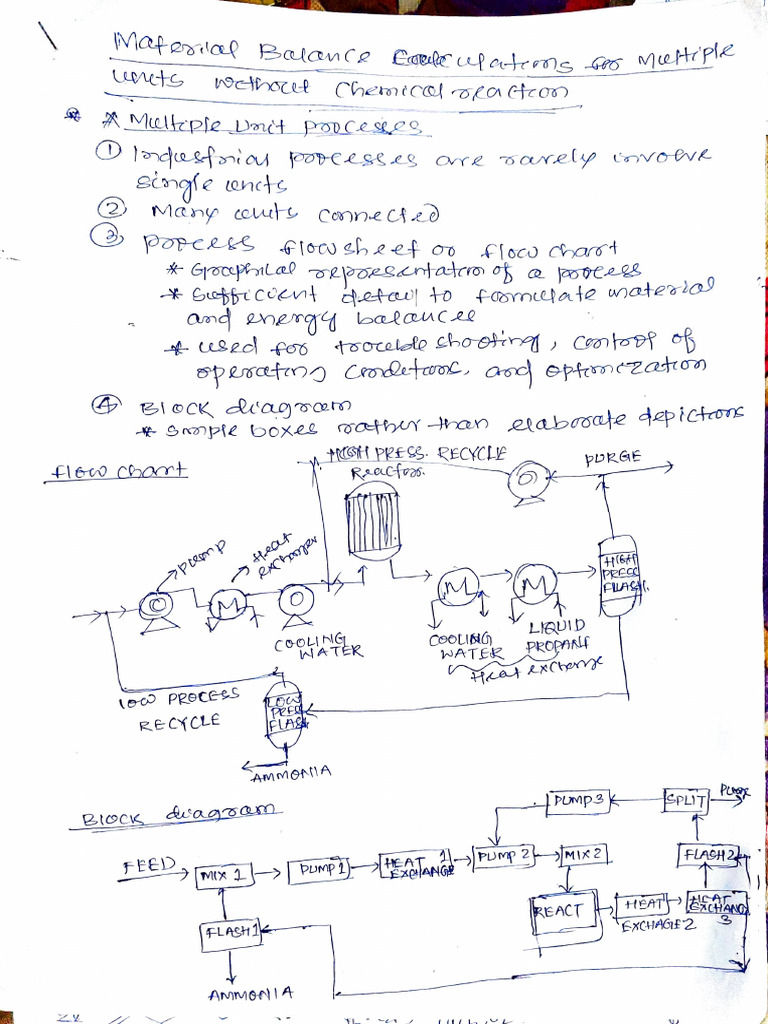 Material Balance Calculations for Multiple
units without chemical reaction
* * Multiple Unit processes
① Industrial processes are rarely involve
single units
② Many units connected
③ process flow sheet or flow chart
* Graphical representation of a process
* Sufficient detail to formulate material
and energy balances
* used for trouble shooting, control of
operating conditions, and optimization
④ Block diagram
* simple boxes rather than elaborate depictions
flow chart
HIGH PRESS. RECYCLE
PURGE
Reactor
pump
Heat
exchanger
HIGH
PRESS
FLASH
COOLING
WATER
COOLING
WATER
LIQUID
PROPANE
Heat exchange
LOW PROCESS
RECYCLE
LOW
PRESS
FLASH
AMMONIA
Block diagram
PUMP3
SPLIT
PURGE
FEED
MIX 1
PUMP1
HEAT 1
EXCHANGE
PUMP 2
MIX2
FLASH2
REACT
HEAT
EXCHAGE2
HEAT
EXCHANG
3
FLASH1
AMMONIA